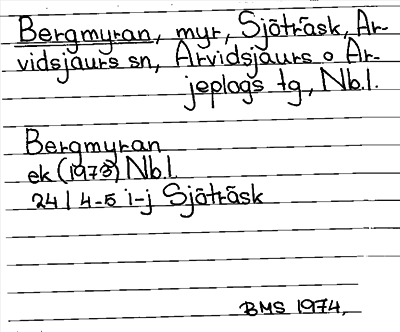 Bergmyran, myr, Sjöträsk, Ar-
vidsjaurs sn, Arvidsjaurs o Ar-
jeplogs tg, Nb.l.
Bergmyran
ek (1973) Nb.l.
24 I 4-5 i-j Sjöträsk
BMS 1974,